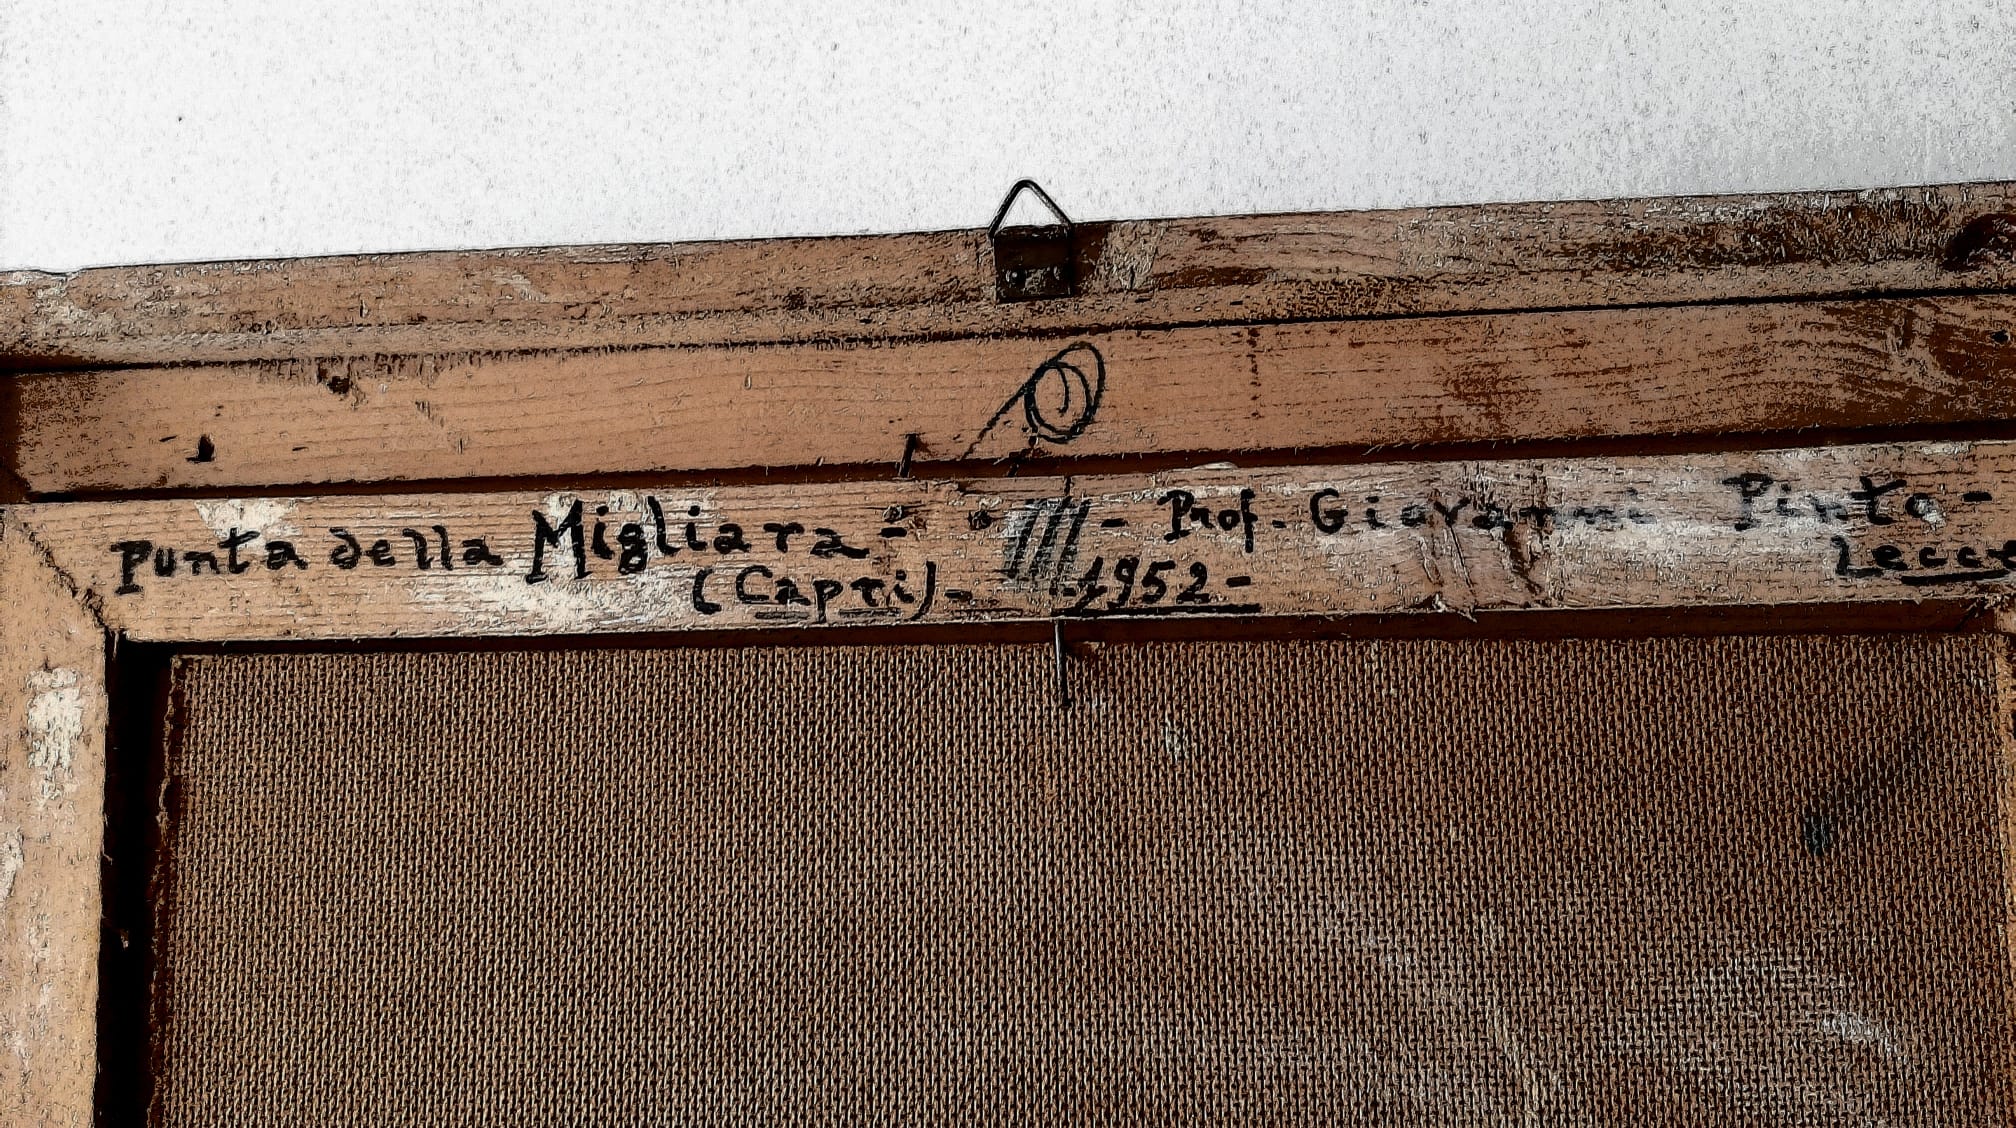 Punta della Migliara - - Prof. Giovanni Pinto -
(Capri) - 1952 - Lecce